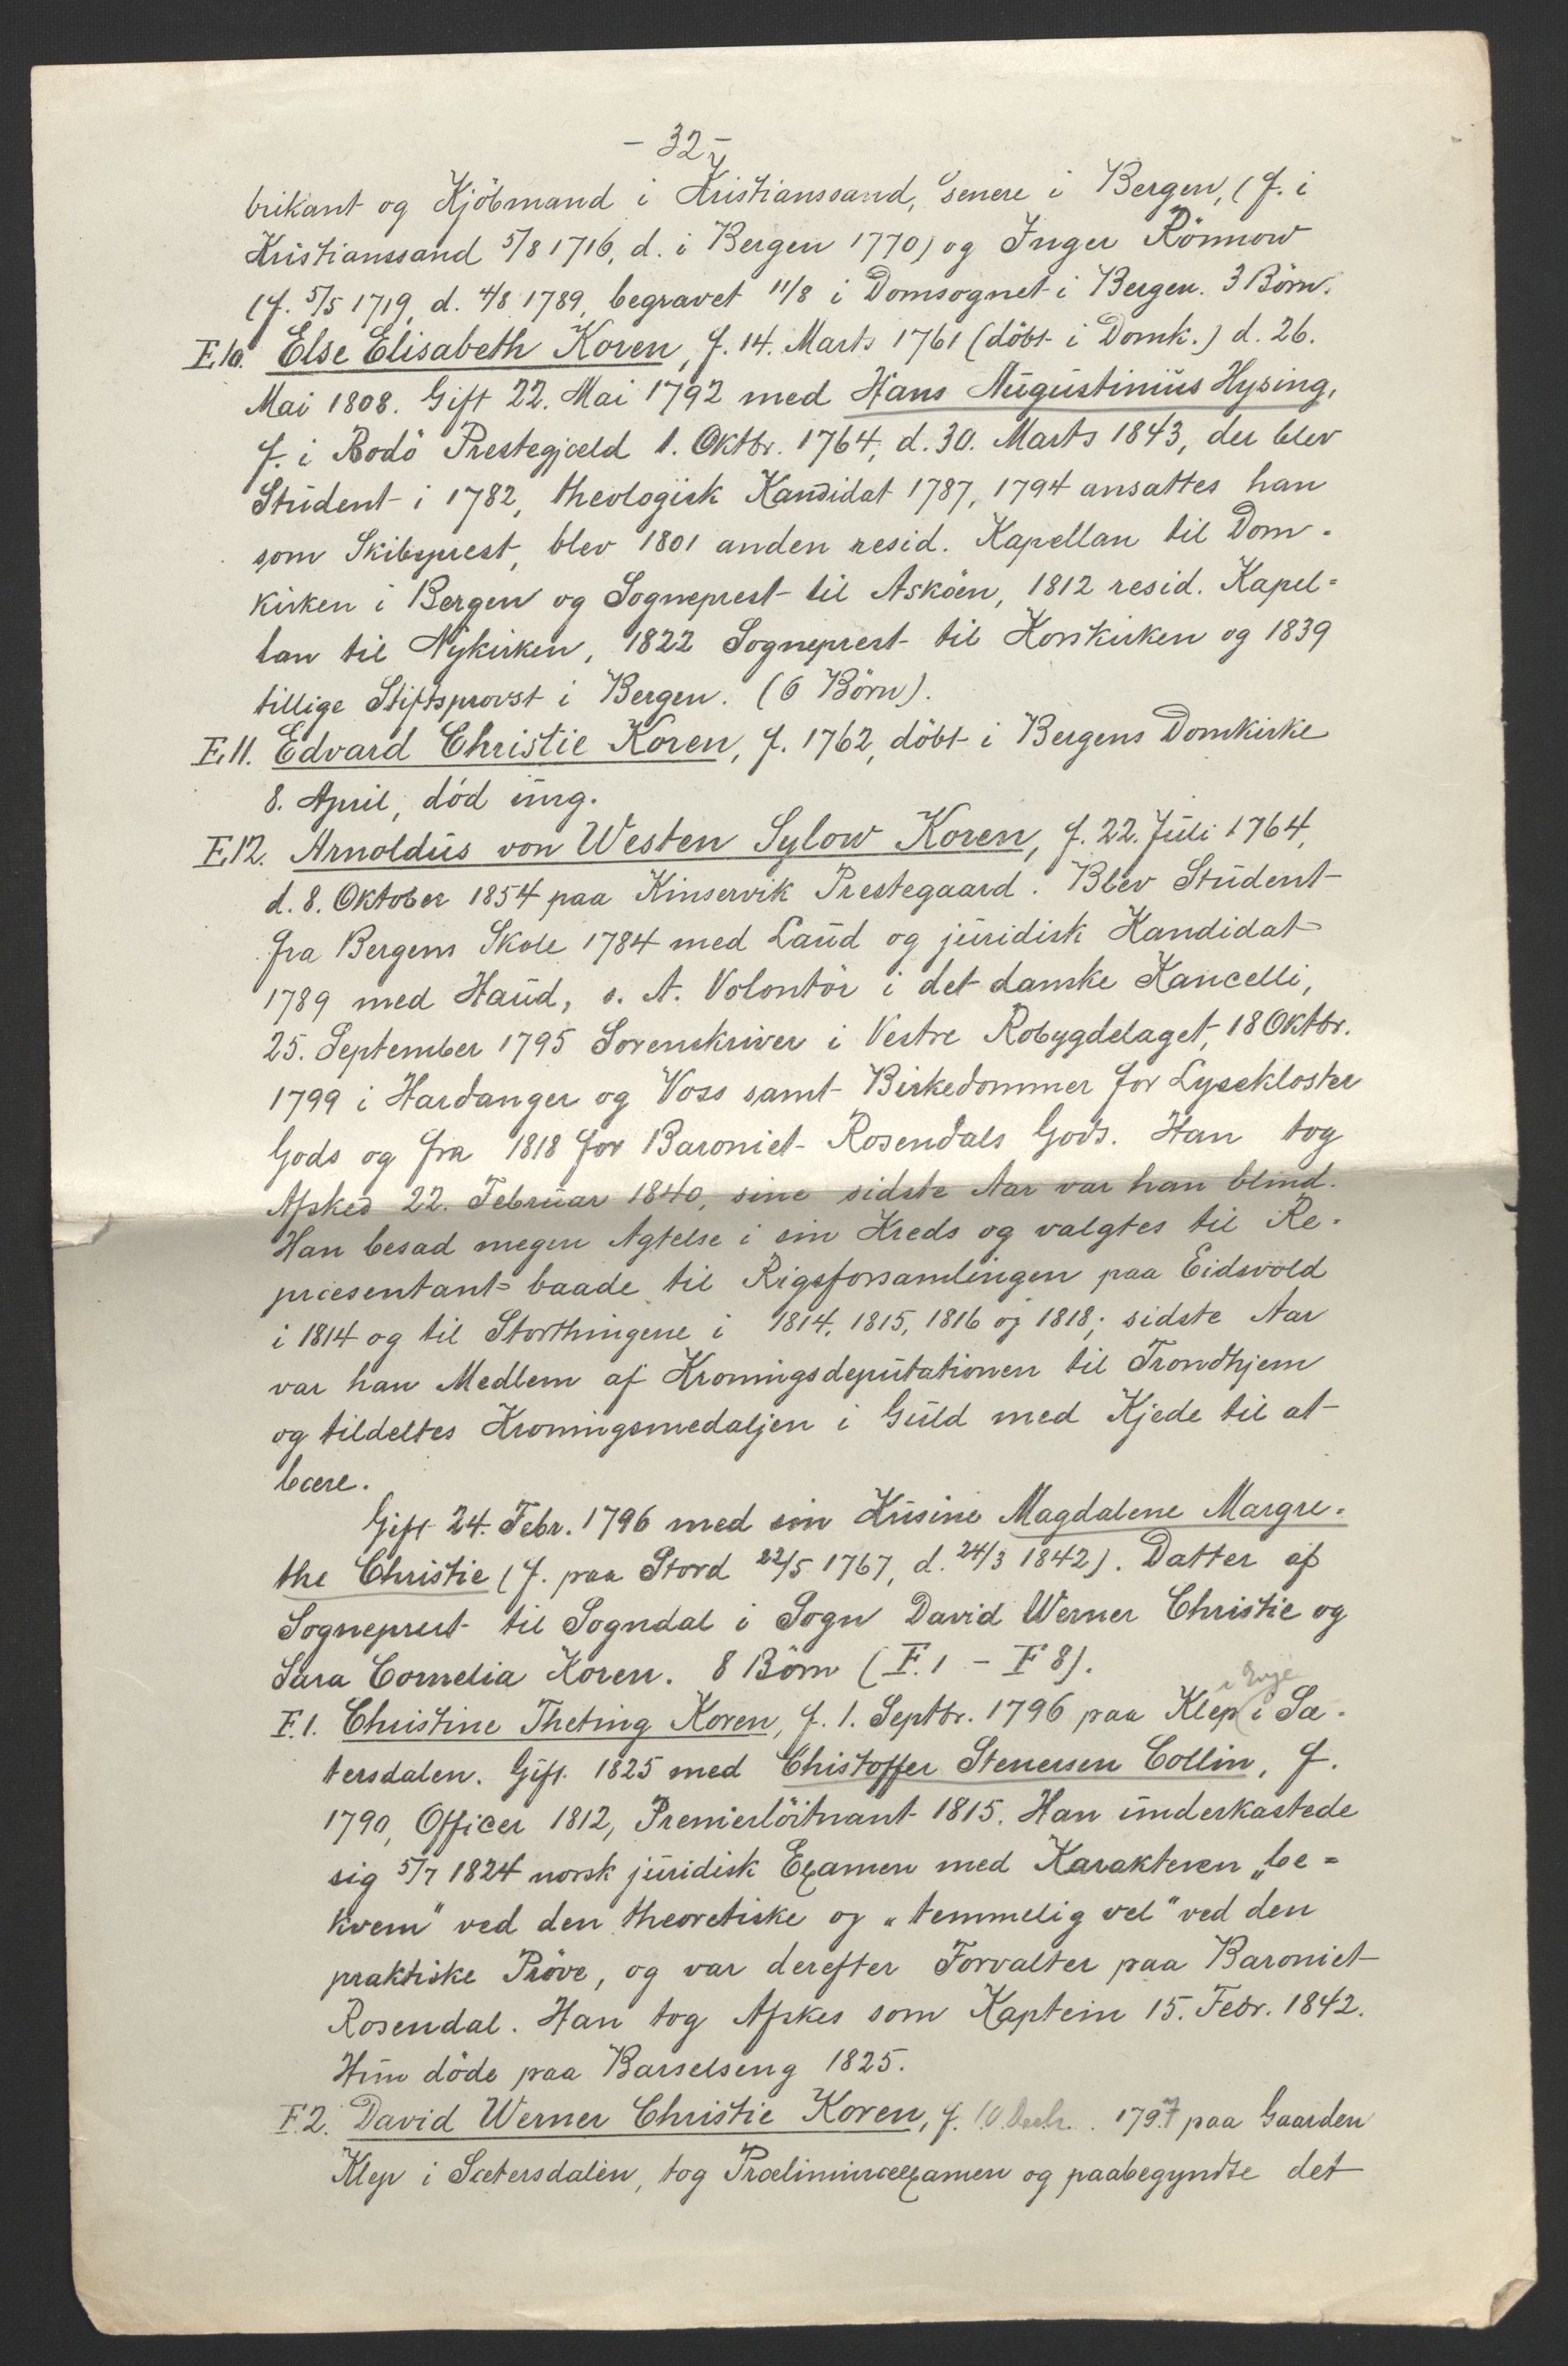 - 32 -
brikant og Kjöbmand i Kristianssand, senere i Bergen, (f. i
Kristianssand 5/8 1716, d. i Bergen 1770) og Inger Rönnow
(f. 5/5 1719, d. 4/8 1789, begravet 11/8 i Domsognet i Bergen. 3 Börn.
E.10. Else Elisabeth Koren, f. 14. Marts 1761 (döbt i Domk.) d. 26.
Mai 1808. Gift 22. Mai 1792 med Hans Augustinius Hysing,
f. i Bodö Prestegjæld 1. Oktbr. 1764, d. 30. Marts 1843, der blev
Student i 1782, theologisk Kandidat 1787, 1794 ansattes han
som Skibsprest, blev 1801 anden resid. Kapellan til Dom-
kirken i Bergen og Sogneprest til Asköen, 1812 resid. Kapel=
lan til Nykirken, 1822 Sogneprest til Korskirken og 1839
tillige Stiftsprovst i Bergen. (6 Börn).
E.11. Edvard Christie Koren, f. 1762, döbt i Bergens Domkirke
8. April, död ung.
E.12. Arnoldus von Westen Sylow Koren, f. 22. Juli 1764,
d. 8. Oktober 1854 paa Kinservik Prestegaard. Blev Student
fra Bergens Skole 1784 med Laud og juridisk Kandidat
1789 med Haud, s. A. Volontör i det danske Kancelli,
25. September 1795 Sorenskriver i Vestre Robygdelaget, 18 Oktbr.
1799 i Hardanger og Voss samt Birkedommer for Lysekloster
Gods og fra 1818 for Baroniet Rosendals Gods. Han tog
Afsked 22. Februar 1840, sine sidste Aar var han blind.
Han besad megen Agtelse i sin Kreds og valgtes til Re-
præsentant baade til Rigsforsamlingen paa Eidsvold
i 1814 og til Storthingene i 1814, 1815, 1816 og 1818; sidste Aar
var han Medlem af Kroningsdeputationen til Trondhjem
og tildeltes Kroningsmedaljen i Guld med Kjede til at
bære.
Gift 24. Febr. 1796 med sin Kusine Magdalene Margre-
the Christie (f. paa Stord 22/5 1767, d. 24/3 1842). Datter af
Sogneprest til Sogndal i Sogn David Werner Christie og
Sara Cornelia Koren. 8 Börn (F.1 - F 8).
i Evje
F.1. Christine Theting Koren, f. 1. Septbr. 1796 paa Klep i Sæ-
tersdalen. Gift 1825 med Chistoffer Stenersen Collin, f.
1790, Officer 1812, Premierlöitnant 1815. Han underkastede
sig 5/7 1824 norsk juridisk Examen med Karakteren „be=
kvem" ved den theoretiske og „temmelig vel" ved den
praktiske Pröve, og var derefter Forvalter paa Baroniet
Rosendal. Han tog Afskes som Kaptein 15. Febr. 1842.
Hun döde paa Barselseng 1825.
F.2. David Werner Christie Koren, f. 10 1797 paa Gaarden
Klep i Sætersdalen, tog Præliminærexamen og paabegyndte det